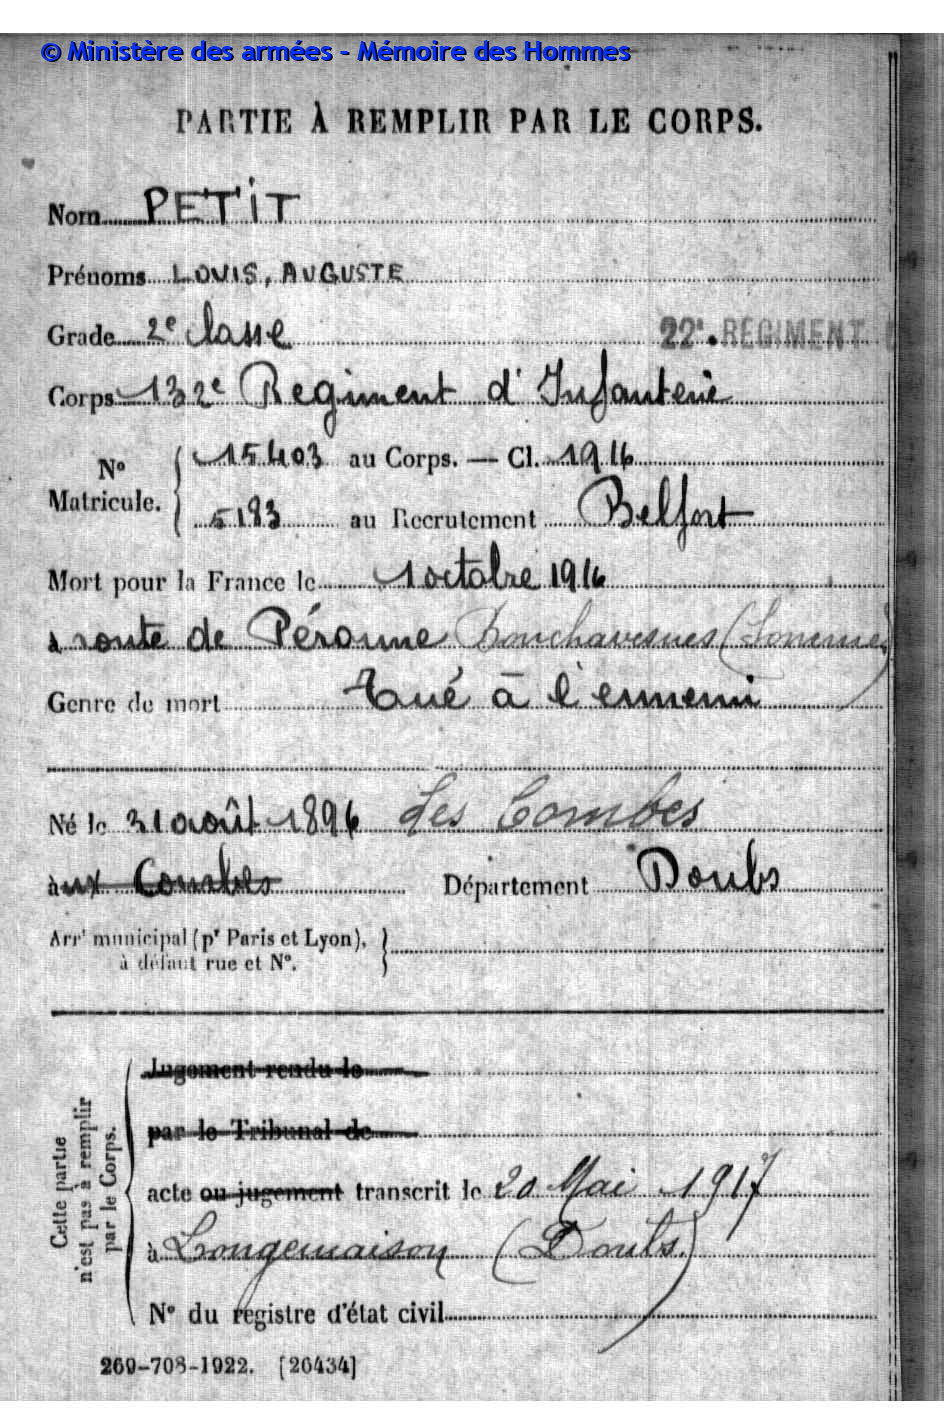 © Ministère des armées - Mémoire des Hommes
PARTIE À REMPLIR PAR LE CORPS.
Nom PETIT
Prénoms LOUIS, AUGUSTE
Grade 2e classe 22e REGIMENT
Corps 132e Regiment d'Infanterie
N° Matricule. 15403 au Corps. — Cl. 1916
5183 au Recrutement Belfort
Mort pour la France le 1 octobre 1916
à route de Péronne Bouchavesnes (Somme)
Genre de mort Tué à l'ennemi
Né le 31 août 1896 Les Combes
aux Combes Département Doubs
Arrt municipal (pr Paris et Lyon),
à défaut rue et N°.
Jugement rendu le
par le Tribunal de
acte ou jugement transcrit le 20 Mai 1917
à Longemaison (Doubs)
N° du registre d'état civil
Cette partie
n'est pas à remplir
par le Corps.
269-708-1922. [26434]